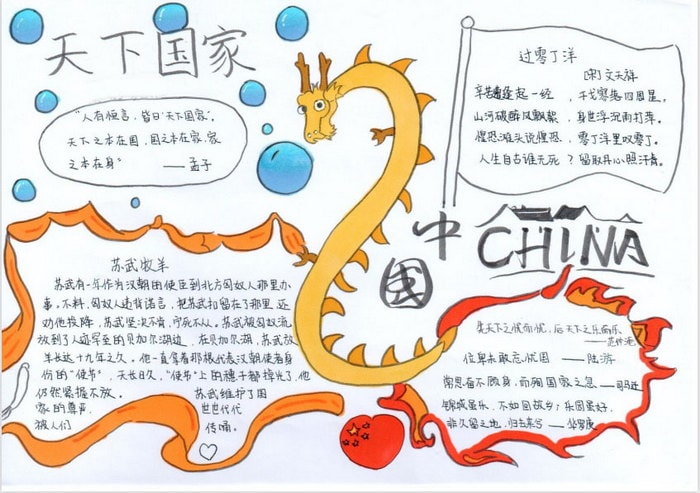 天下国家
"人有恒言，皆曰'天下国家'。
天下之本在国，国之本在家，家
之本在身"——孟子
过零丁洋
[宋]文天祥
辛苦遭逢起一经，干戈寥落四周星。
山河破碎风飘絮，身世浮沉雨打萍。
惶恐滩头说惶恐，零丁洋里叹零丁。
人生自古谁无死？留取丹心照汗青。
中国
CHINA
苏武牧羊
苏武有一年作为汉朝的使臣到北方匈奴人那里办
事。不料，匈奴人违背诺言，把苏武扣留在了那里，还
劝他投降，苏武坚决不肯，宁死不从。苏武被匈奴流
放到了人迹罕至的贝加尔湖边，在贝加尔湖，苏武放
羊长达十九年之久。他一直拿着那根代表汉朝使者身
份的"使节"，天长日久，"使节"上的穗子都掉光了，他
仍然紧握不放。 苏武维护了国
家的尊严， 世世代代
被人们 传诵。
先天下之忧而忧，后天下之乐而乐
——范仲淹
位卑未敢忘忧国 ——陆游
常思奋不顾身，而殉国家之急——司马迁
锦城虽乐，不如回故乡；乐园虽好，
非久留之地，归去来兮——华罗庚